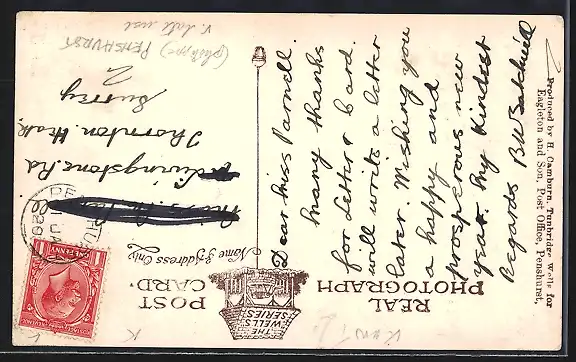 REAL
PHOTOGRAPH
THE
WELLS
SERIES
POST
CARD.
Name & Address Only
Dear Miss Parnell.
Many thanks
for letter & card.
will write a letter
later. Wishing you
a happy and
prosperous new
year. My kindest
Regards
Livingstone Rd
Thornton Heath
Surrey
2
PENSHURST
v. late use
Produced by H. Camburn, Tunbridge Wells for
Eagleton and Son, Post Office, Penshurst.
ONE PENNY
Kent
K